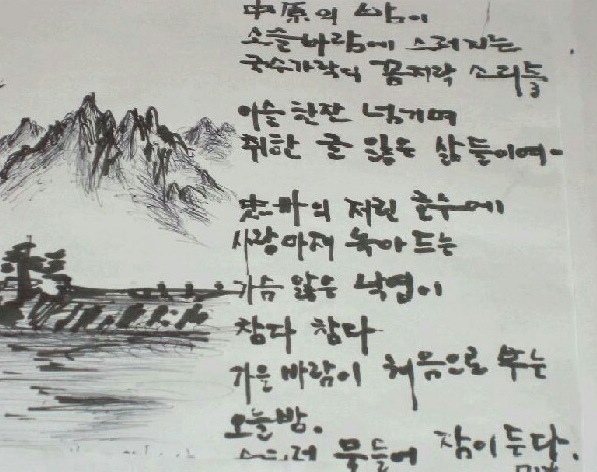 中原의 밤이
소슬바람에 스러지는
국수가락의 꼼지락 소리들
이슬 한잔 넘기며
취한 글 앓은 삶들이여-
저린 춘수에
사랑마저 녹아 드는
가슴 앓은 낙엽이
참다 참다
가운 바람이 처음으로 부는
오늘밤.
물들어 잠이 든다.